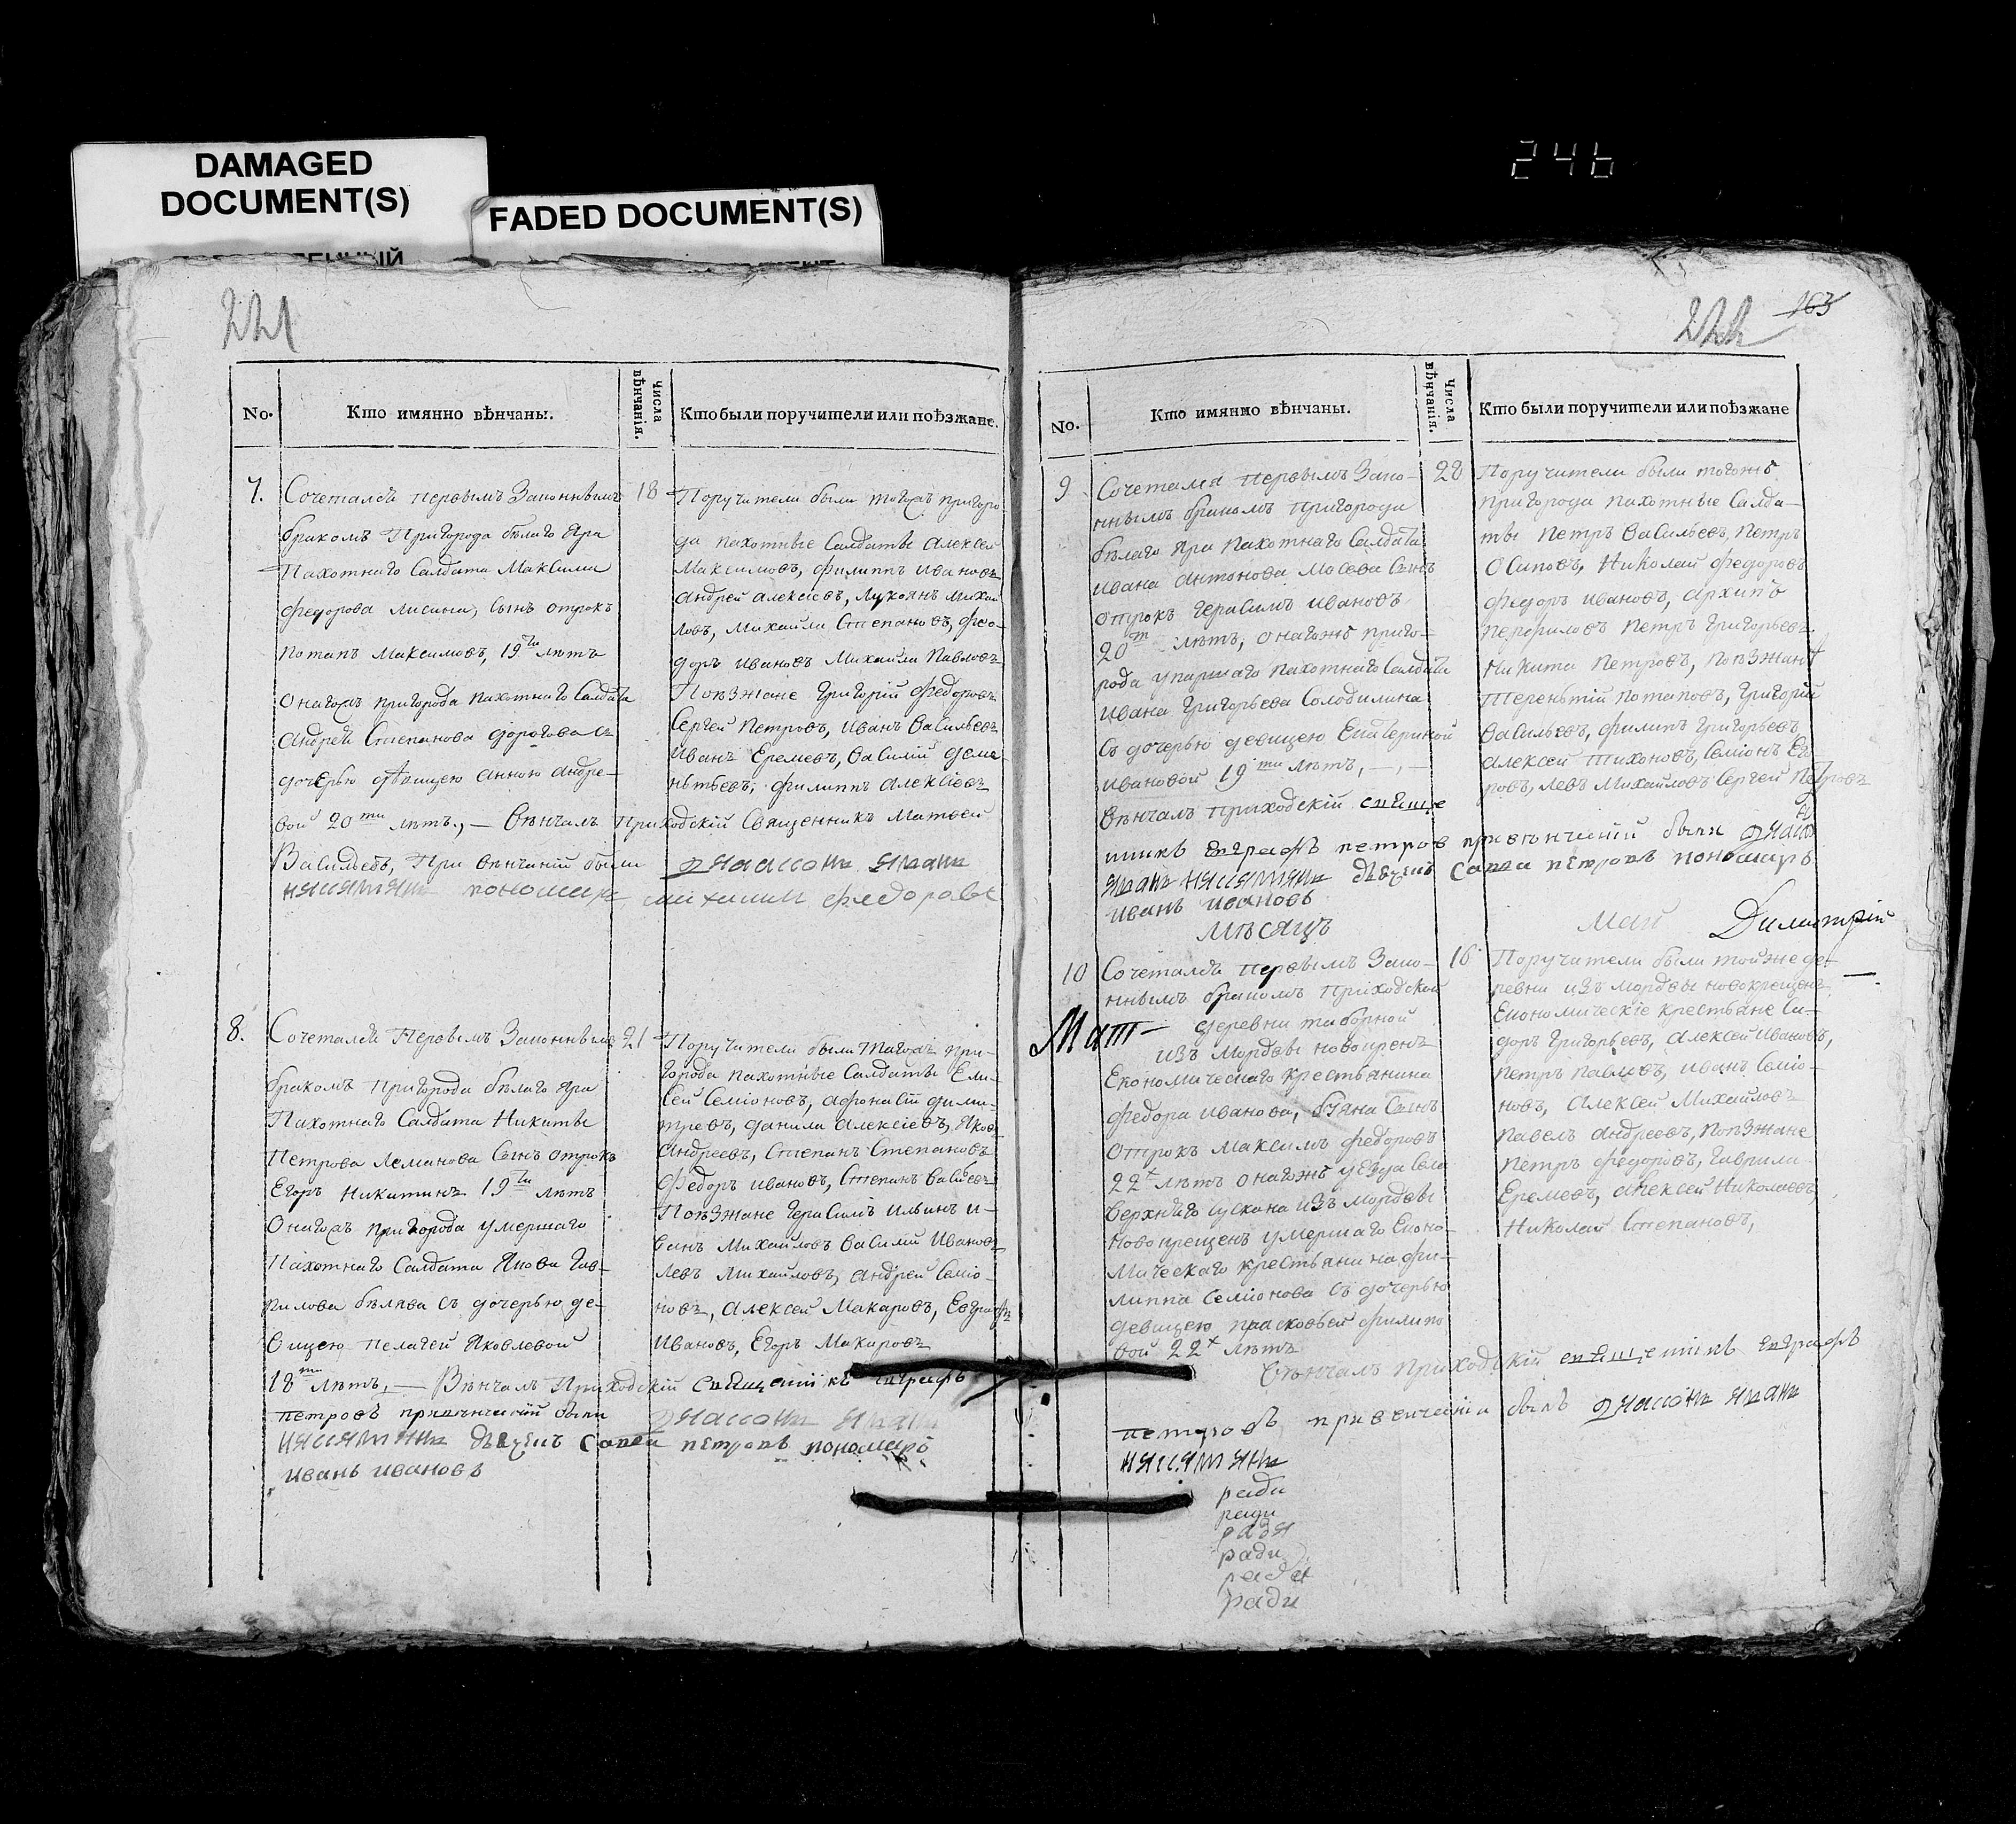 DAMAGED
DOCUMENT(S)
FADED DOCUMENT(S)
246
221
No.
Кто имянно вѣнчаны.
Числа вѣнчанія.
Кто были поручители или поѣзжане.
7.
Сочетался первымъ законнымъ
бракомъ Пригорода бѣлаго Яра
Пахотнаго Салдата Максима
Федорова Лисина, сынъ отрокъ
Потапъ Максимовъ, 19ти лѣтъ
онагожъ пригорода пахотнаго Салдата
Андрея Степанова
дочерью дѣвицею Анною Андре-
вой 20ти лѣтъ, — Вѣнчалъ Приходскій Священникъ Матвей
Васильевъ, При вѣнчаніи были
пономарь федоровъ
18
Поручители были тогожъ пригоро
да пахотные Салдаты Алексей
Максимовъ, Филиппъ Ивановъ
Андрей Алексіевъ, Лукоянъ Михай
ловъ, Михайла Степановъ, Фео-
доръ Ивановъ Михайла Павловъ
Поѣзжане Григорій Федоровъ
Сергей Петровъ, Иванъ Васильевъ
Иванъ Еремеевъ, Василий
Филиппъ Алексіевъ
8.
Сочетался Первымъ Законнымъ
бракомъ пригорода бѣлаго Яра
Пахотнаго Салдата Никиты
Петрова Леманова Сынъ отрокъ
Егоръ Никитинъ 19ти лѣтъ
Онагожъ пригорода умершаго
Пахотнаго Салдата Якова Гав-
рилова съ дочерью де-
вицею Пелагей Яковлевой
18ти лѣтъ, — Вѣнчалъ Приходскій
петровъ при вѣнчаніи были
Савва петровъ пономарь
иванъ ивановъ
21
Поручители были тагожъ при-
города пахотные Салдаты Ели-
сей Семіоновъ, Афонасій Дими-
тревъ, Данила Алексіевъ, Яковъ
Андреевъ, Степанъ Степановъ
Федоръ Ивановъ, Степанъ
Поѣзжане Герасимъ Ильинъ И-
ванъ Михайловъ Василій Ивановъ
Левъ Михайловъ, Андрей Семіо-
новъ, Алексей Макаровъ, Евграфъ
Ивановъ, Егоръ Макаровъ
222
163
No.
Кто имянно вѣнчаны.
Числа вѣнчанія.
Кто были поручители или поѣзжане
9
Сочетался Первымъ Зако-
ннымъ бракомъ пригорода
бѣлаго Яра Пахотнаго Салдата
Ивана Антонова Сынъ
отрокъ Герасимъ Ивановъ
20т лѣтъ, онагожъ приго-
рода умершаго пахотнаго Салдата
Ивана Григорьева Солодилина
Съ дочерью девицею Екатериной
Ивановой 19ти лѣтъ, —
Вѣнчалъ приходскій
петров привѣнчаніи были
Савва петровъ пономарь
иванъ ивановъ
28
Поручители были тогожъ
пригорода пахотные Салда-
ты Петръ Васильевъ, Петръ
Осиповъ, Николай Федоровъ
Федоръ Ивановъ, Архипъ
Перфиловъ Петръ Григорьевъ
Никита Петровъ, поѣзжанѣ
Терентій Потаповъ, Григорій
Васильевъ, Филипъ Григорьевъ
Алексей Тихоновъ, Семіонъ Его
ровъ, Левъ Михайловъ Сергей Петровъ
Мѣсяцъ
Май
Димитрій
10
Сочетался первымъ Зако-
ннымъ бракомъ Приходской
Мат-
деревни таборной
изъ Мордвы новокрещенъ
Економическаго крестьянина
Федора Иванова, Сынъ
отрокъ Максимъ Федоровъ
22х лѣтъ онагожъ уезда Села
Верхняго Сускана изъ Мордвы
новокрещенъ умершаго Еконо-
мическаго крестьянина Фи-
липпа Семіонова Съ дочерью
девицею Прасковьей Филипо
вой 22х лѣтъ
Вѣнчалъ приходскій
петровъ привѣнчаніи былъ
ради
ради
ради
ради
ради
16
Поручители были тойже де-
ревни изъ мордвы новокрещены
Економическіе крестьяне Си-
доръ Григорьевъ, Алексей Ивановъ,
Петръ Павловъ, Иванъ Семіо-
новъ, Алексей Михайловъ
Павелъ Андреевъ, Поѣзжане
Петръ Федоровъ, Гаврила
Еремеевъ, Алексей Николаевъ,
Николай Степановъ,